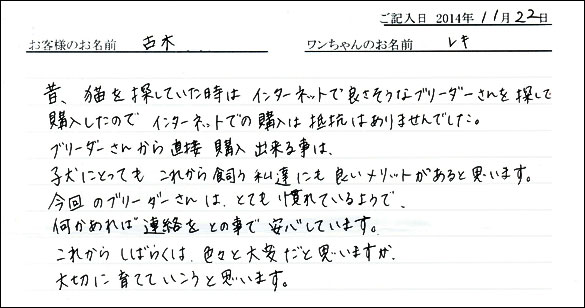 ご記入日 2014年11月22日
お客様のお名前 古木 ワンちゃんのお名前 レキ
昔、猫を探していた時は インターネットで良さそうなブリーダーさんを探して
購入したので インターネットでの購入は 抵抗はありませんでした。
ブリーダーさんから直接 購入 出来る事は、
子犬にとっても これから飼う 私達にも 良いメリットがあると思います。
今回 のブリーダーさん は、とても 慣れているようで、
何かあれば 連絡を との事で 安心しています。
これから しばらくは、色々と 大変だと 思いますが、
大切に 育てていこうと思います。